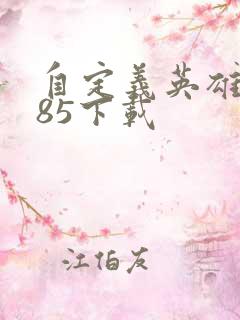 自定義英雄
85下載
江伯友